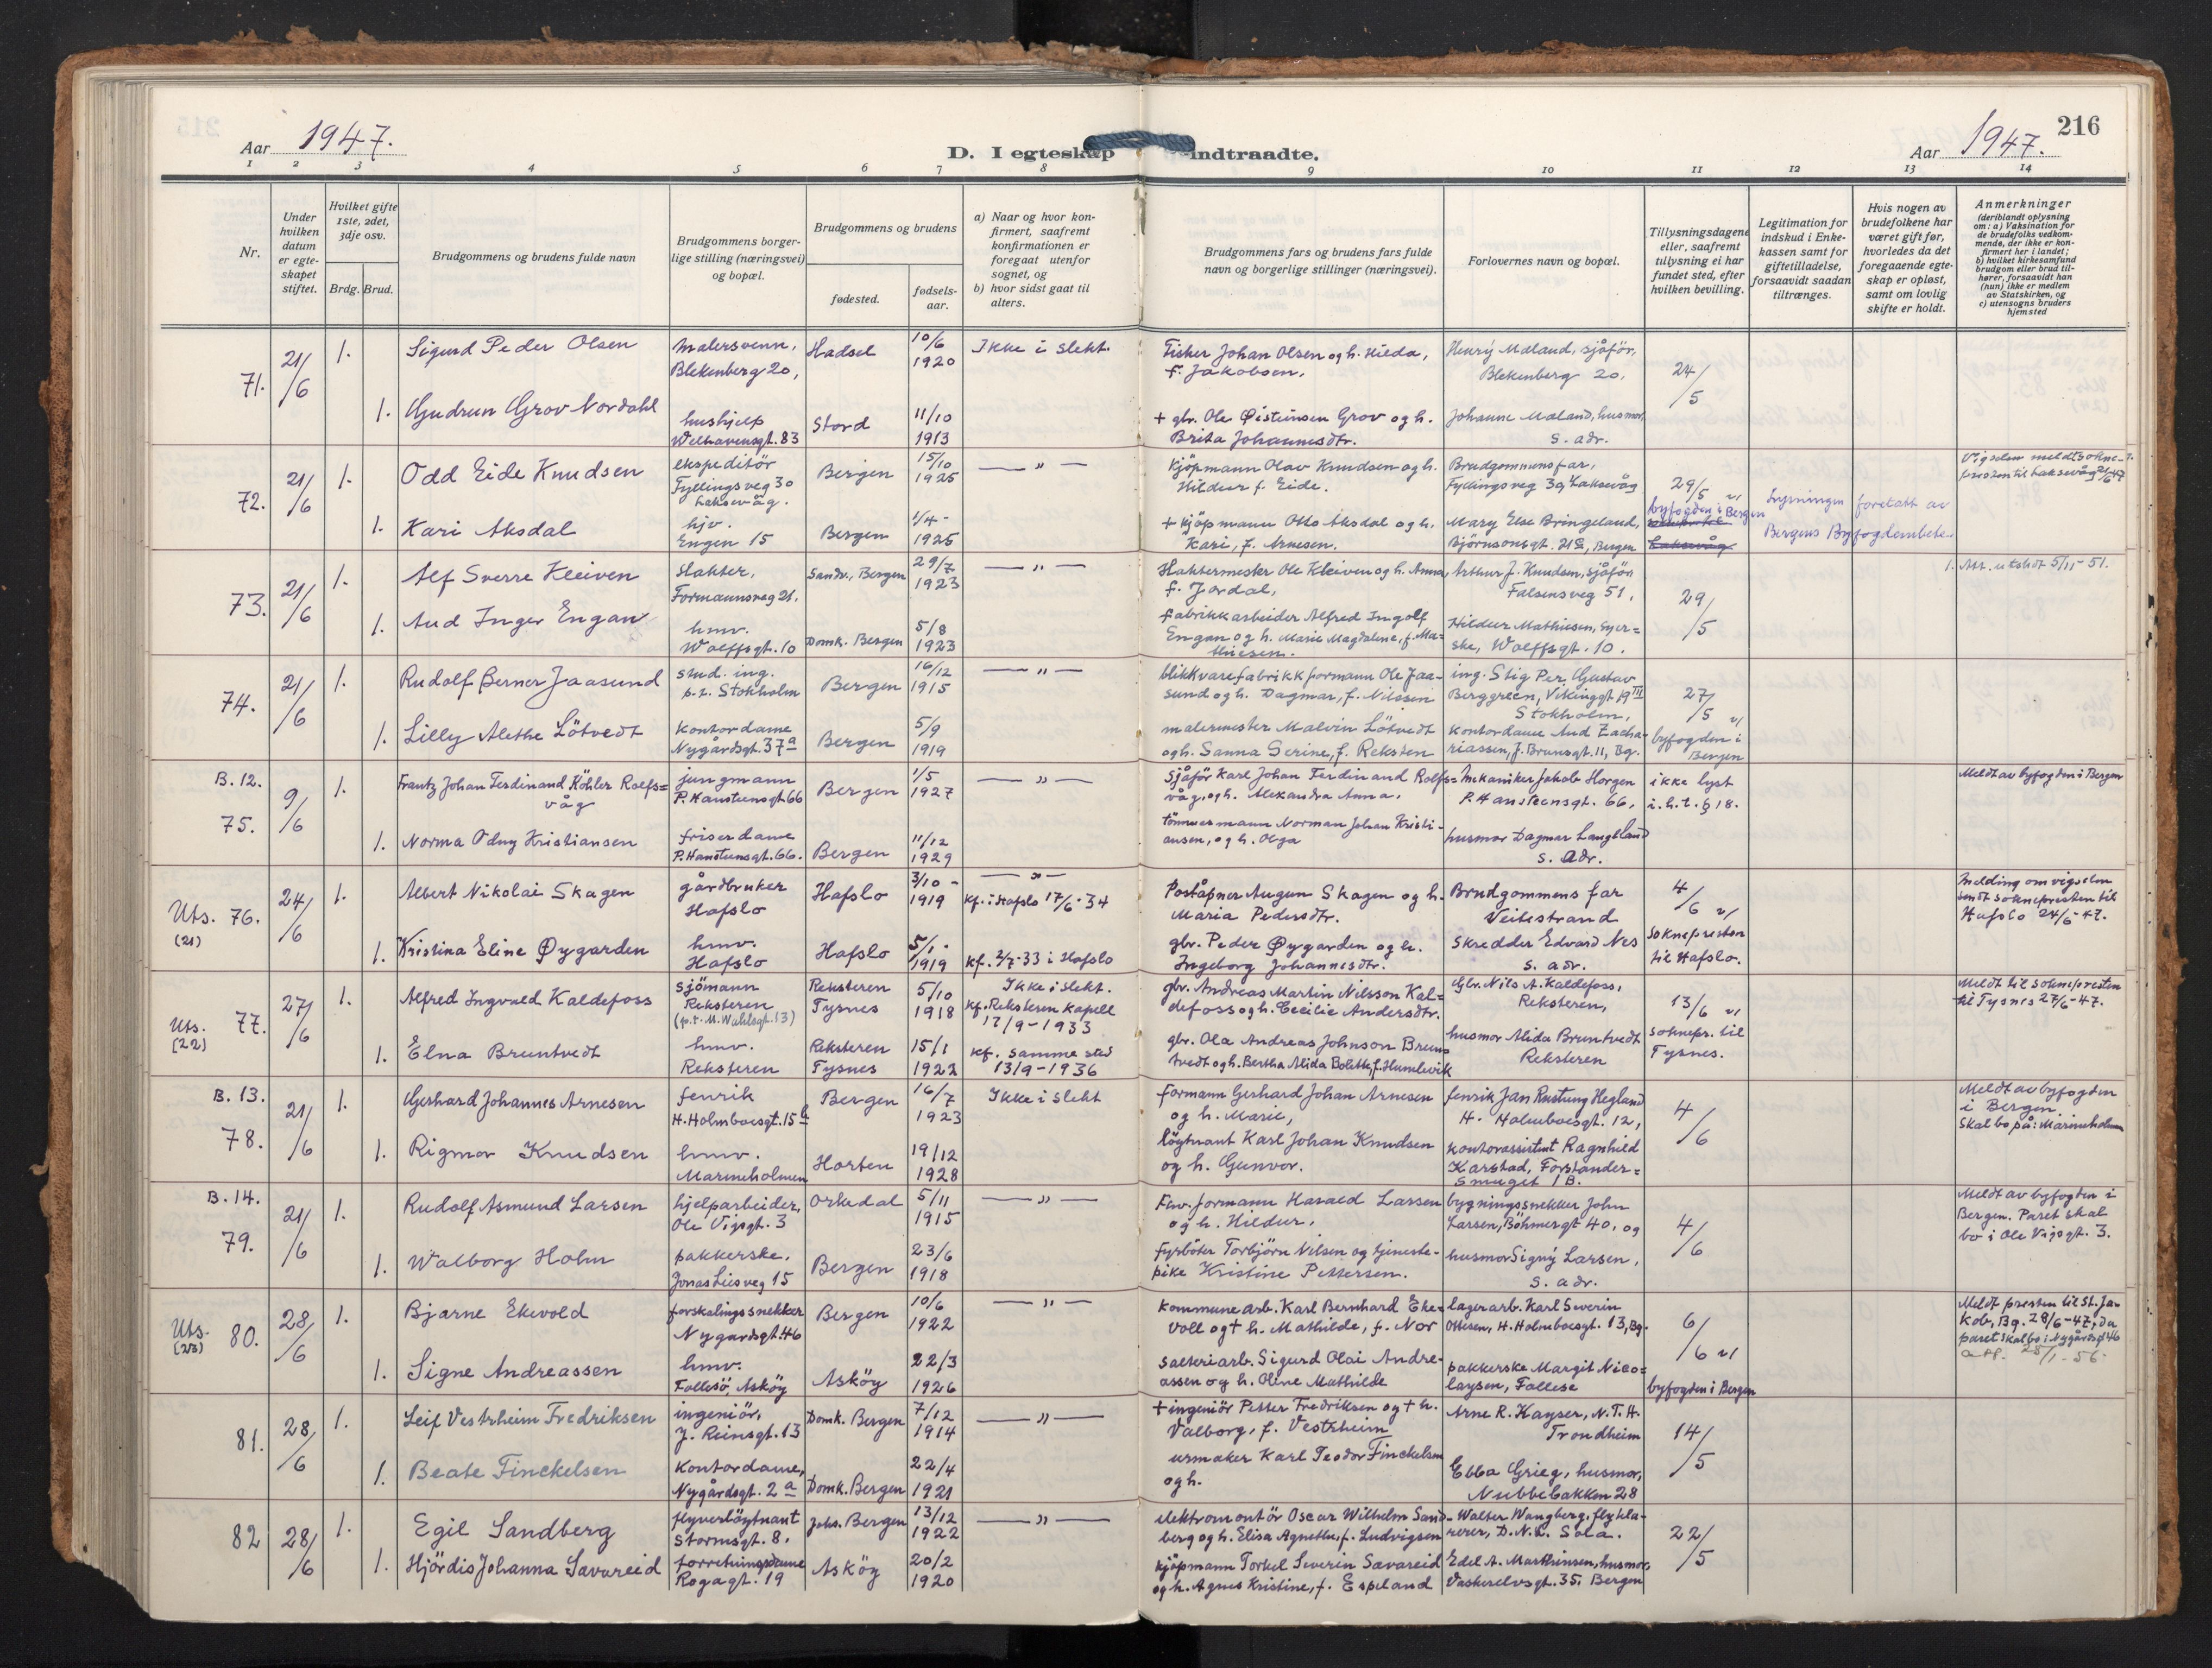 216
Aar 1947.
D. I egteskap indtraadte.
Aar 1947.
1 2 3 4 5 6 7 8 9 10 11 12 13 14
Nr.
Under hvilken datum er egte-skapet stiftet.
Hvilket gifte 1ste, 2det, 3dje osv.
Brdg. Brud.
Brudgommens og brudens fulde navn
Brudgommens borger-lige stilling (næringsvei) og bopæl.
Brudgommens og brudens
fødested.
fødsels-aar.
a) Naar og hvor kon-firmert, saafremt konfirmationen er foregaat utenfor sognet, og
b) hvor sidst gaat til alters.
Brudgommens fars og brudens fars fulde navn og borgerlige stillinger (næringsvei).
Forlovernes navn og bopæl.
Tillysningsdagene eller, saafremt tillysning ei har fundet sted, efter hvilken bevilling.
Legitimation for indskud i Enke-kassen samt for giftetilladelse, forsaavidt saadan tiltrænges.
Hvis nogen av brudefolkene har været gift før, hvorledes da det foregaaende egte-skap er opløst, samt om lovlig skifte er holdt.
Anmerkninger
(deriblandt oplysning om: a) Vaksination for de brudefolks vedkom-mende, der ikke er kon-firmert her i landet;
b) hvilket kirkesamfund brudgom eller brud til-hører, forsaavidt han (hun) ikke er medlem av Statskirken, og
c) utensogns bruders hjemsted
71. 21/6 1. Sigurd Peder Olsen malersvenn, Blekenberg 20, Hadsel 10/6 1920 Ikke i slekt. Fisker Johan Olsen og h. Hilda, f. Jakobsen. Henry Mæland, sjåför, Blekenberg 20. 24/5
1. Gudrun Grov Nordahl hushjelp Welhavensgt. 83 Stord 11/10 1913 + gbr. Ole Øistensen Grov og h. Brita Johannesdtr. Johanne Mæland, husmor, s. adr.
72. 21/6 1. Odd Eide Knudsen ekspeditör Fyllingsveg 30 Laksevåg. Bergen 15/10 1925 — " — Kjöpmann Olav Knudsen og h. Hildur f. Eide. Brudgommens far, Fyllingsveg 30, Laksevåg 29/5 v/ byfogden i Bergen Lysningen foretatt av Bergens Byfogdembete. Vigselen meldt sokne-presten til Laksevåg 21/6 47
1. Kari Aksdal hjv. Engen 15 Bergen 1/4- 1925 + kjöpmann Otto Aksdal og h. Kari, f. Arnesen. Mary Else Bringeland, Björnsonsgt. 21c, Bergen Laksevåg
73. 21/6 1. Alf Sverre Kleiven slakter, Formannsveg 21. Sandv., Bergen 29/7 1923 — " — Slaktermester Ole Kleiven og h. Anna, f. Jordal, Arthur J. Knudsen, sjåför, Falsensveg 51, 29/5 1. Att. utstedt 5/11- 51.
1. Aud Inger Engan hmv. Wolffsgt. 10 Domk. Bergen 5/8 1923 fabrikkarbeider Alfred Ingolf Engan og h. Marie Magdalene, f. Ma-thiesen. Hildur Mathiesen, syer-ske, Wolffsgt. 10.
74. 21/6 1. Rudolf Berner Jaasund stud. ing. p.t. Stokholm Bergen 16/12 1915 — " — blikkvarefabrikkformann Ole Jaa-sund og h. Dagmar, f. Nilssen ing. Stig Per Gustav Berggreen, Vikinggt 19 III Stokholm, 27/5 v/ byfogden i Bergen
1. Lilly Alethe Lötvedt Kontordame Nygårdsgt. 37a Bergen 5/9 1919 malermester Malvin Lötvedt og h. Sanna Serine, f. Reksten kontordame Aud Zacha-riassen, J. Brunsgt. 11, Bg.
B. 12. 75. 9/6 1. Frantz Johan Ferdinand Köhler Rolfs=våg jungmann P. Hansteensgt 66 Bergen 1/5 1927 — " — Sjåför Karl Johan Ferdinand Rolfs=våg, og h. Alexandra Anna. Mekaniker Jakob Horgen P. Hansteensgt. 66, ikke lyst i.h.t. § 18. Meldt av byfogden i Bergen
1. Norma Odny Kristiansen friserdame P. Hansteensgt. 66. Bergen 11/12 1929 tömmermann Norman Johan Kristi-ansen, og h. Olga husmor Dagmar Laugeland s. adr.
Uts. (21) 76. 24/6 1. Albert Nikolai Skagen gårdbruker Hafslo Hafslo 3/10 - 1919 — " — kf. i Hafslo 17/6-34 Poståpner Augun Skagen og h. Maria Pedersdtr. Brudgommens far Veitestrand 4/6 v/ soknepresten til Hafslo. Melding om vigselen sendt soknepresten til Hafslo 24/6-47.
1. Kristina Eline Øygarden hmv. Hafslo Hafslo 5/1- 1919 kf. 2/7-33 i Hafslo gbr. Peder Øygarden og h. Ingeborg Johannesdtr. skredder Edvard Nes s. adr.
Uts. (22) 77. 27/6 1. Alfred Ingvald Kaldefoss sjömann Reksteren (p.t. M. Wahlsgt. 13) Reksteren Tysnes 5/10 1918 Ikke i slekt. kf. Reksteren kapell 17/9-1933 gbr. Andreas Martin Nilsson Kal=defoss og h. Cecilie Andersdtr. Gbr. Nils A. Kaldefoss, Reksteren, 13/6 v/ soknepr. til Tysnes. Meldt til soknepresten til Tysnes 27/6-47.
1. Elna Bruntvedt hmv. Reksteren Reksteren Tysnes 15/1 1922 kf. samme sted 13/9-1936 gbr. Ola Andreas Johnson Brun-tvedt og h. Bertha Alida Bolette, f. Humlevik husmor Alida Bruntvedt Reksteren
B. 13. 78. 21/6 1. Gerhard Johannes Arnesen fenrik H. Holmboesgt. 15b Bergen 16/7 1923 Ikke i slekt formann Gerhard Johan Arnesen og h. Marie, fenrik Jan Rustung Hegland H. Holmboesgt. 12, 4/6 Meldt av byfogden i Bergen. Skal bo på: Marineholmen
1. Rigmor Knudsen hmv. Marineholmen Horten 19/12 1928 löytnant Karl Johan Knudsen og h. Gunvor. kontorassistent Ragnhild Karstad, Forstander=smuget 1B.
B. 14. 79. 21/6 1. Rudolf Asmund Larsen hjelparbeider, Ole Vigsgt. 3 Orkedal 5/11 1915 — " — Fhv. formann Harald Larsen og h. Hildur. bygningssnekker John Larsen, Böhmersgt 40, og 4/6 Meldt av byfogden i Bergen. Paret skal bo i Ole Vigsgt. 3.
1. Walborg Holm pakkerske. Jonas Liesveg 15 Bergen 23/6 1918 fyrböter Torbjörn Nilsen og tjeneste-pike Kristine Pettersen. husmor Signy Larsen, s. adr.
Uts. (23) 80. 28/6 1. Bjarne Ekevold forskalingssnekker Nygårdsgt. 46 Bergen 10/6 1922 — " — kommunearb. Karl Bernhard Eke=voll og + h. Mathilde, f. Nor lagerarb. Karl Severin Ottesen, H. Holmboesgt. 13, Bg. 6/6 v/ byfogden i Bergen Meldt presten til St. Ja-kob, Bg. 28/6-47, da paret skal bo i Nygårdsgt 46 att. 28/1-56-
1. Signe Andreassen hmv. Follesö, Asköy Asköy 22/3 1926 salteriarb. Sigurd Olai Andre-assen og h. Oline Mathilde pakkerske Margit Nico=laysen, Follese
81. 28/6 1. Leif Vestrheim Fredriksen ingeniör, J. Reinsgt. 13 Domk. Bergen 7/12 1914 — " — + ingeniör Petter Fredriksen og + h. Valborg, f. Vestrheim Arne R. Kayser, N.T.H. Trondheim 14/5
1. Beate Finckelsen Kontordame, Nygårdsgt. 2a Domk. Bergen 22/4 1921 urmaker Karl Teodor Finckelsen og h. Ebba Grieg, husmor, Nubbebakken 28
82 28/6 1. Egil Sandberg flyverlöytnant Stormsgt. 8. Johs. Bergen 13/12 1922 — " — elektromontör Oscar Wilhelm Sand-berg og h. Elisa Agnethe, f. Ludvigsen Walter Wangberg, flykla-rerer, D.N.L. Sola. 22/5
1. Hjördis Johanna Savareid forretningsdame Rogagt. 19 Asköy 20/2 1920 kjöpmann Torkel Severin Savareid og h. Agnes Kristine, f. Espeland Edel A. Marthinsen, husmor, Vaskerelvsgt. 35, Bergen